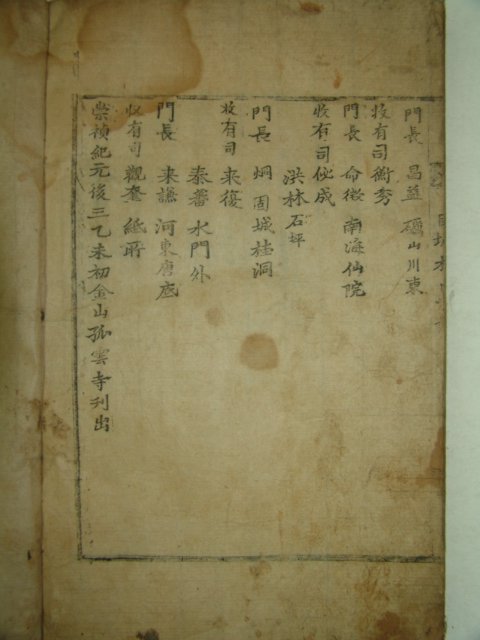 門長 昌益 礪山川東
收有司 衡秀
門長 命徵 南海仙院
收有司 必成
洪林 石坪
門長 炯 固城桂洞
收有司 來復
泰蕃 水門外
門長 來謙 河東唐底
收有司 觀奎 紙所
崇禎紀元後三乙未初金山孤雲寺刊出